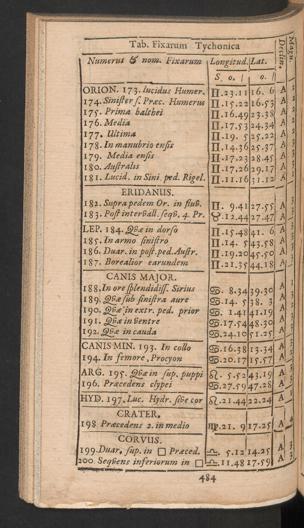 Tab. Fixarum Tychonica
Numerus & nom. Fixarum Longitud. Lat. Declin. Magn.
S. o. ′ o. ′
ORION. 173. lucidus Humer. ♊.23.11 16. 6 A
174. Sinister s. Præc. Humerus ♊.15.22 16.53 A
175. Prima balthei ♊.16.49 23.38 A
176. Media ♊.17.53 24.34 A
177. Ultima ♊.19. 5 25.22 A
178. In manubrio ensis ♊.14.36 25.37 A
179. Media ensis ♊.17.23 28.45 A
180. Australis ♊.17.26 29.17 A
181. Lucid. in Sini. ped. Rigel. ♊.11.16 31.12 A
ERIDANUS.
182. Supra pedem Or. in fluv. ♊. 9.41 27.55 A
183. Post intervall. sequ. 4. Pr. ♉.12.44 27.47 A
LEP. 184. Quæ in dorso ♊.15.48 41. 6 A
185. In armo sinistro ♊.14. 5 43.58 A
186. Duar. in post. ped. Austr. ♊.19.20 45.50 A
187. Borealior earundem ♊.21.35 44.18 A
CANIS MAJOR.
188. In ore splendidiss. Sirius ♋. 8.34 39.30 A
189. Quæ sub sinistra aure ♋.14. 5 38. 3 A
190. Quæ in extr. ped. prior ♋. 1.41 41.19 A
191. Quæ in ventre ♋.17.54 48.30 A
192. Quæ in cauda ♋.24.10 51.25 A
CANIS MIN. 193. In collo ♋.16.38 13.34 A
194. In femore, Procyon ♋.20.17 15.57 A
ARG. 195. Quæ in sup. puppi ♌. 5.52 43.19 A
196. Præcedens clypei ♋.27.59 47.28 A
HYD. 197. Luc. Hydr. sive cor ♌.21.44 22.24 A
CRATER.
198 Præcedens 2. in medio ♍.21. 9 17.25 A
CORVUS.
199. Duar. sup. in □ Præced. ♎. 5.12 14.25 A
200. Sequens inferiorum in □ ♎.11.48 17.59 A
484